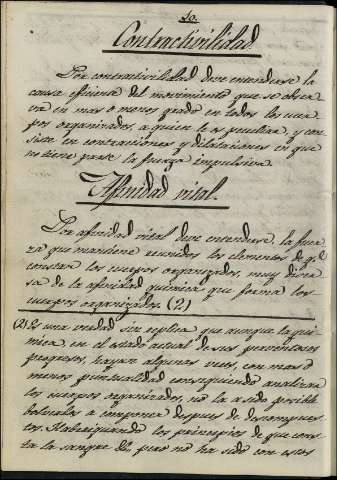 10.
Contractivilidad.
Por contractivilidad deve entenderse la
causa eficiente del movimiento que se obser-
va en mas ó menos grado en todos los cuer-
pos organizados, a quien le es peculiar, y con-
siste en contracciones y dilataciones en que
no tiene parte la fuerza impulsiva.
Afinidad vital.
Por afinidad vital deve entenderse la fuer-
za que mantiene reunidos los elementos de q.e
constan los cuerpos organizados, muy diver-
sa de la afinidad quimica que forma los
cuerpos organizados. (2)
(2) Es una verdad sin replica que aunque la qui-
mica, en el estado actual de sus portentosos
progresos, hayan algunas veces, con mas ó
menos puntualidad conseguido analizar
los cuerpos organizados, no la a sido posible
bolverlos a componer despues de descompues-
tos. Haberiguando los principios de que cons-
ta la sangre &, pero no ha sido con estos